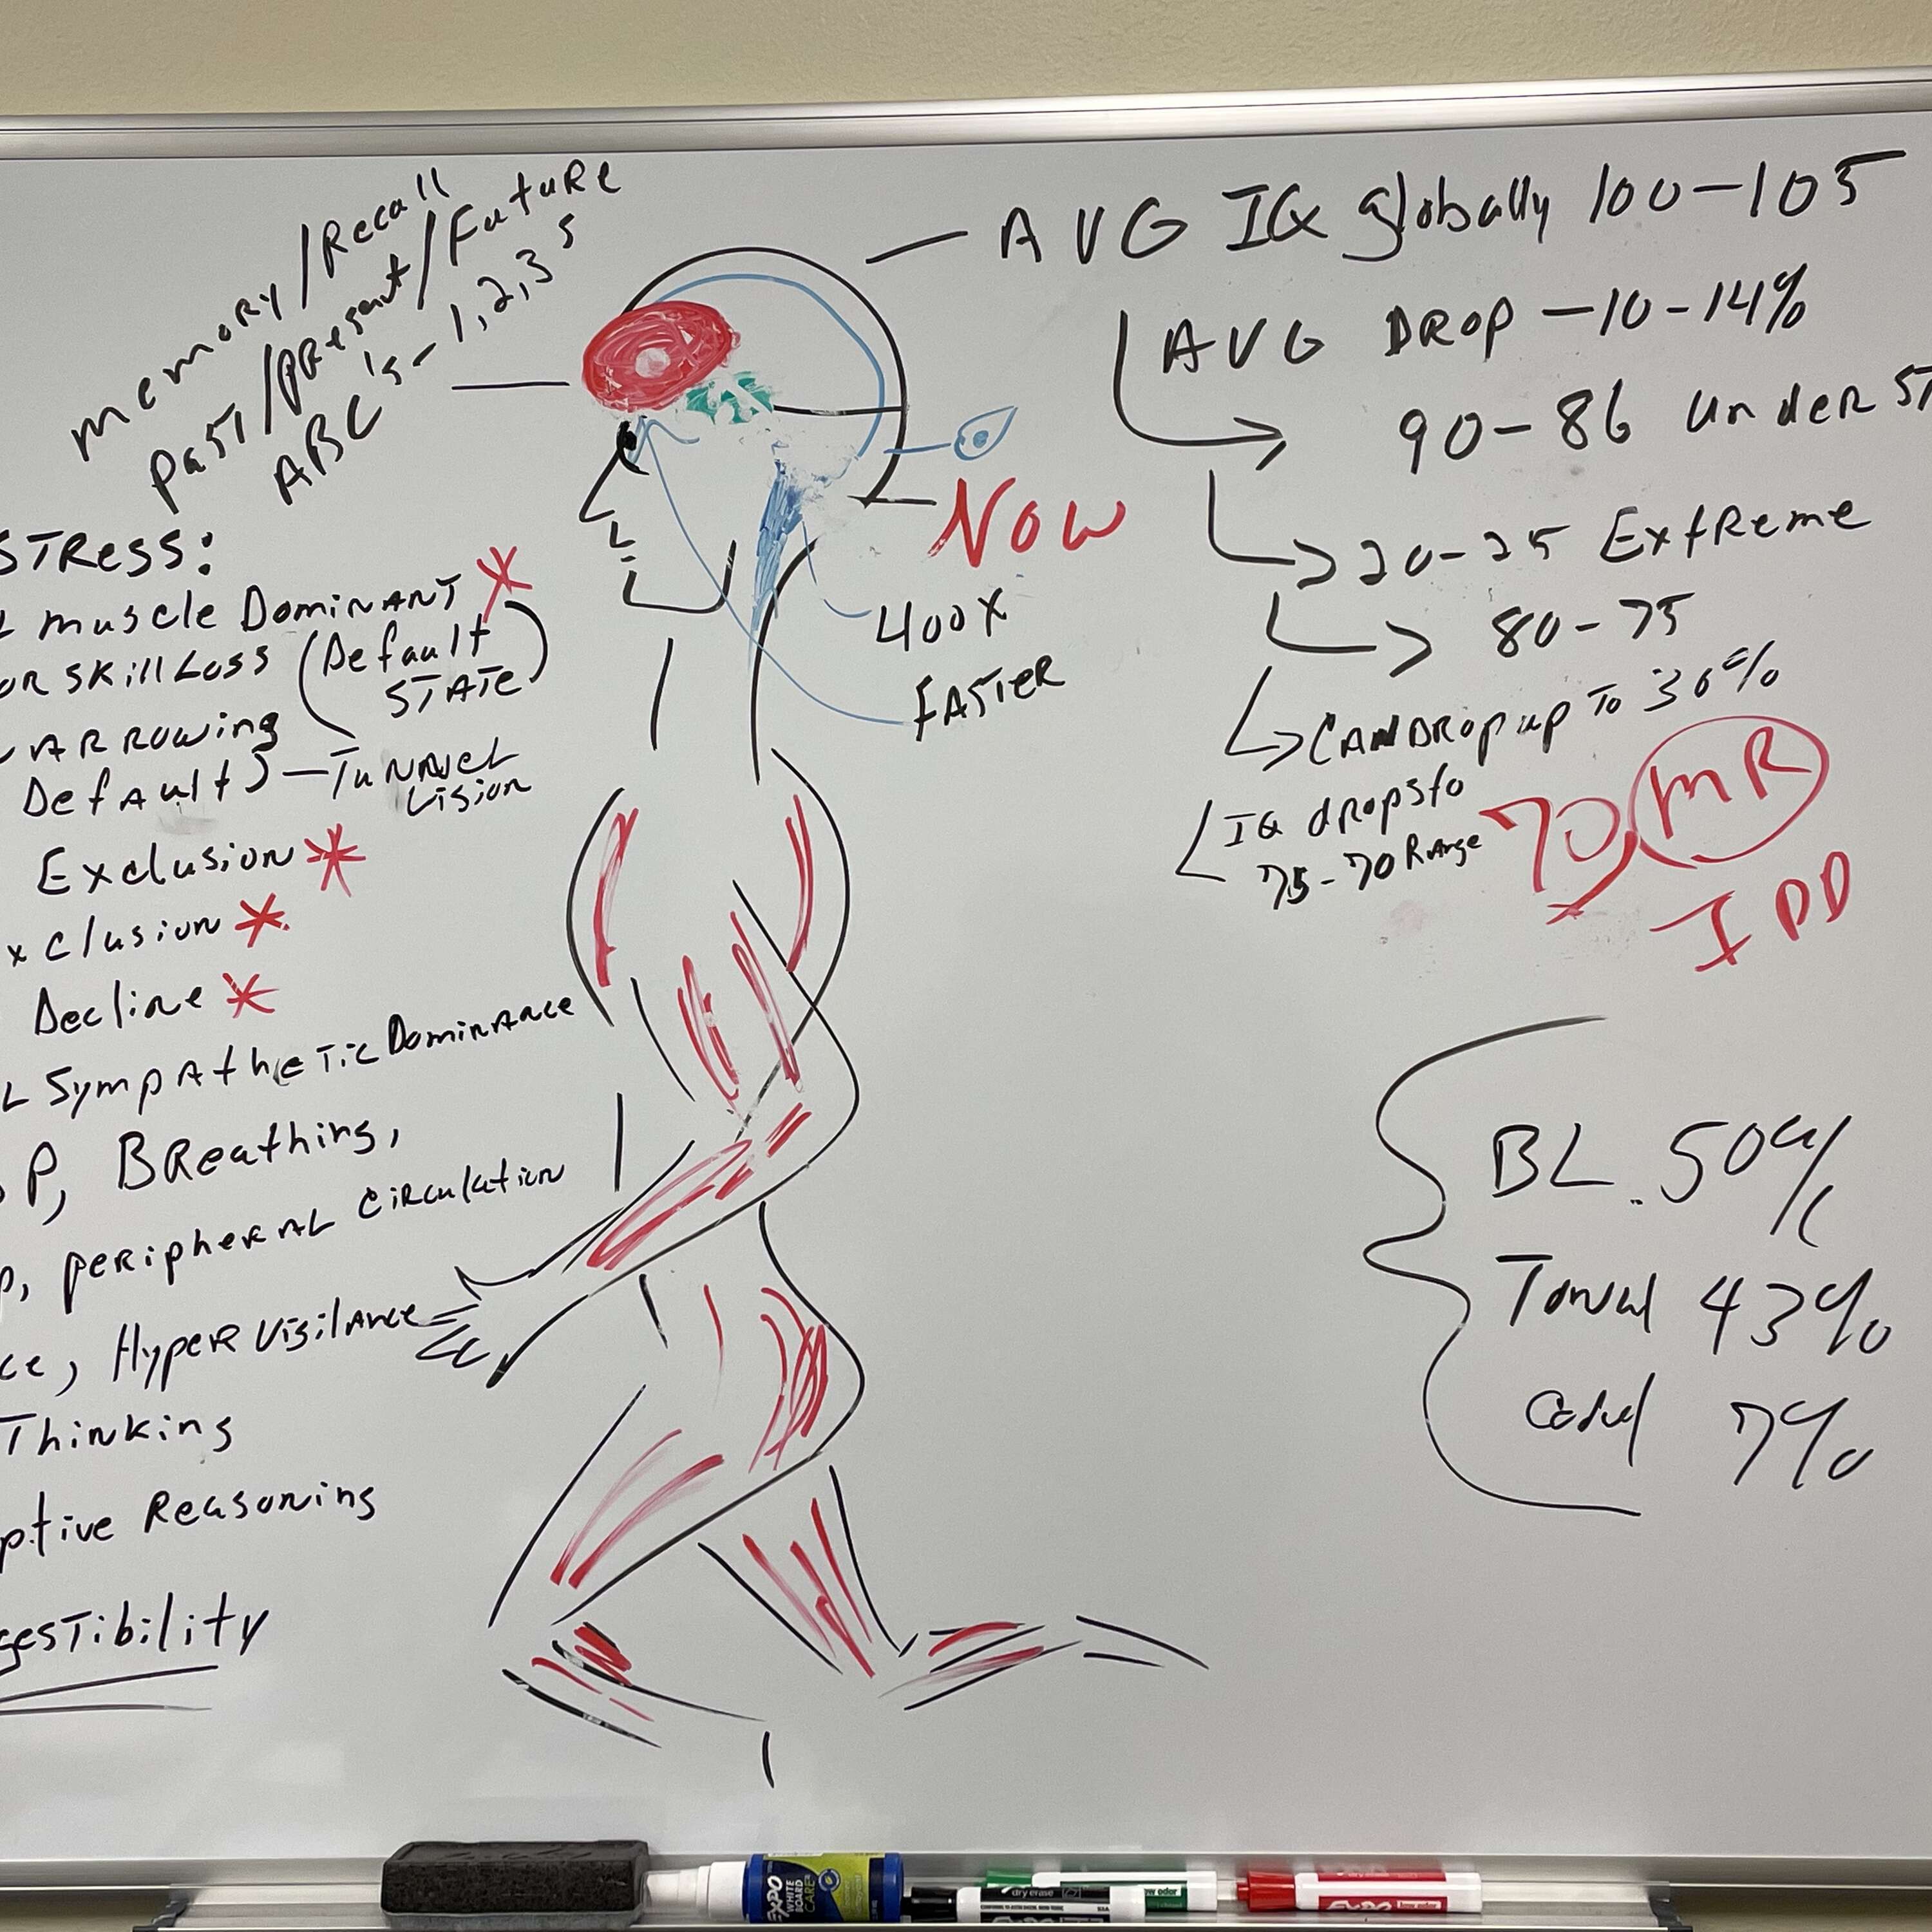 memory/Recall
past/present/Future
ABC's - 1,2,3s
STRess:
muscle Dominant
OR skill Loss (Default
STATE)
ARROWing
Default) — Tunnel
Vision
Exclusion
xclusion
Decline
L Sympathetic Dominance
P, BReathing,
, peRipheRAL ciRculation
ce, HypeR Vigilance
Thinking
ptive Reasoning
gesTibility
AVG IQ globally 100-105
AVG DROP -10-14%
90-86 under ST
20-25 ExtReme
80-75
CAN DROP up To 30%
IQ dRops to
75-70 Range
70 MR
IDD
NOW
400X
FASTER
BL. 50%
Tonal 43%
7%
EXPO
WHITE
BOARD
CARE
dry erase
low odor
EXPO
low odor